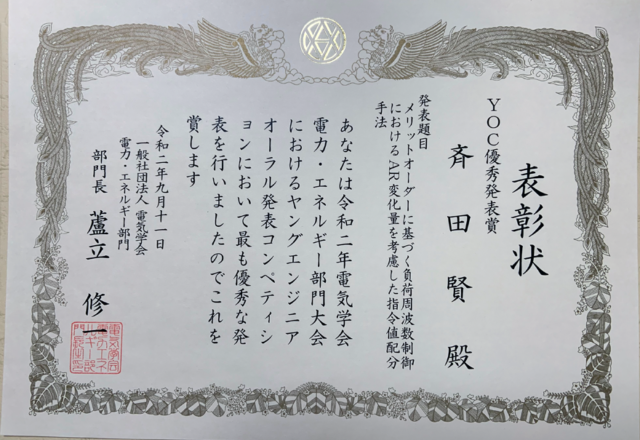 表彰状
YOC優秀発表賞
斉田賢殿
発表題目
メリットオーダーに基づく負荷周波数制御
におけるAR変化量を考慮した指令値配分
手法
あなたは令和二年電気学会
電力・エネルギー部門大会
におけるヤングエンジニア
オーラル発表コンペティシ
ョンにおいて最も優秀な発
表を行いましたのでこれを
賞します
令和二年九月十一日
一般社団法人 電気学会
電力・エネルギー部門
部門長 蘆立修一